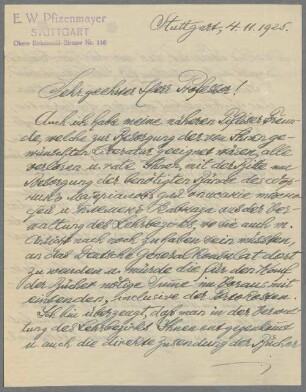 E. W. Pfizenmayer
STUTTGART
Obere Birkenwald-Strasse No. 116
Stuttgart, 4. 11. 1925.
Sehr geehrter Herr Professor!
Auch ich habe meine näheren Tifliser Freunde,
welche zur Besorgung der von Ihnen gewünschten
Literatur geeignet wären, alle
verloren u. rate Ihnen, mit der Bitte um
Besorgung der benötigten Bände des
материалов для описание
и Кавказа aus der Verwaltung
des Lehrbezirks, wo sie auch m.
Ansicht nach noch zu haben sein müssten,
an das Deutsche General Konsulat dort
zu wenden u. würde die für den Kauf
der Bücher nötige Summe im Voraus mit
einsenden, inclusive der Portokosten.
Ich bin überzeugt, dass man in der Verwaltung
des Lehrbezirks Ihnen
u. auch die Zusendung der Bücher